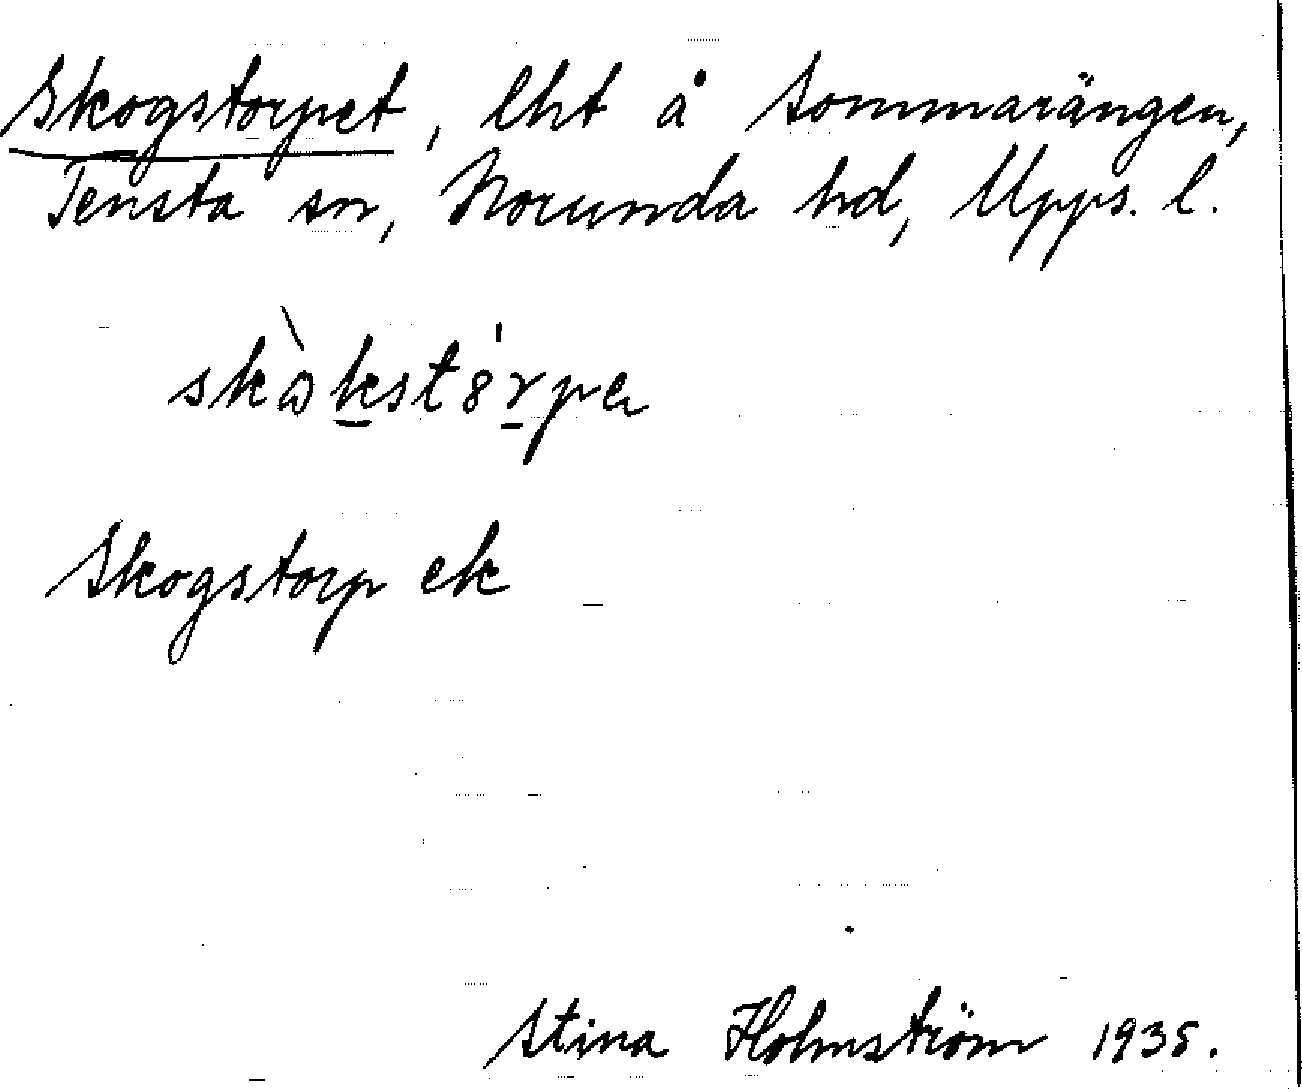 Skogstorpet, lht å Sommarängen,
Tensta sn, Norunda hd, Upps. l.
Skogstorp ek
Stina Holmström 1935.